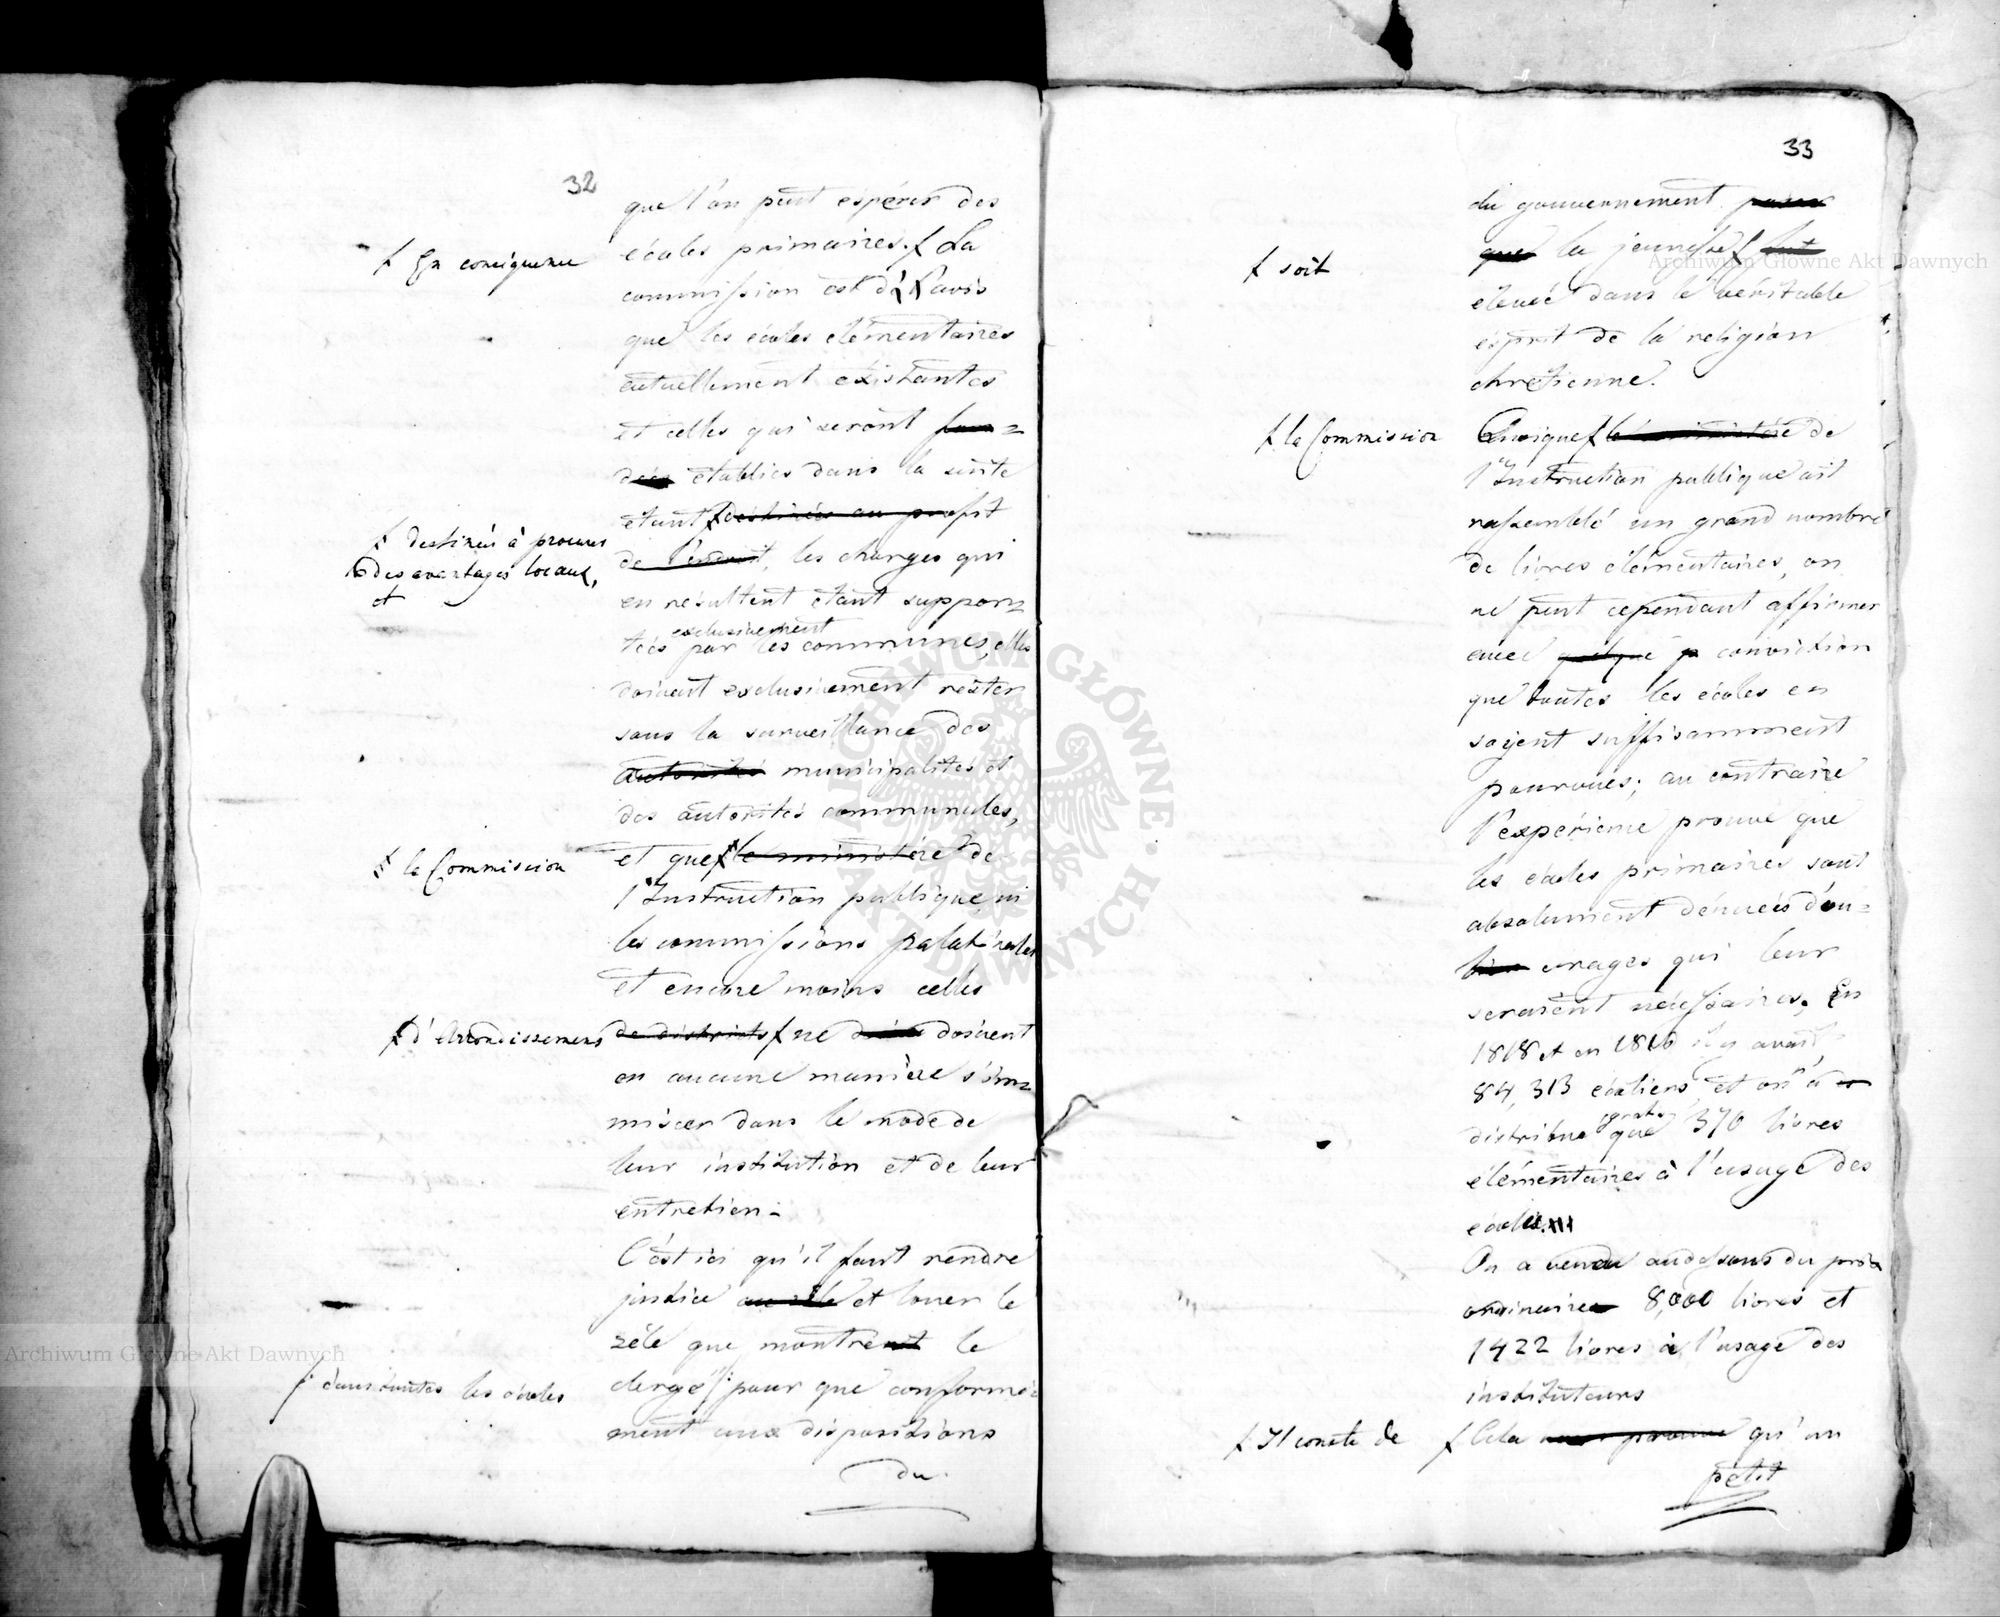 32
que l'on peut espérer des
ƒ En consequence
écoles primaires. ƒ La
commission est de l'avis
que les écoles elémentaires
actuellement existantes
et celles qui seront fon=
dées établies dans la suite
etant ƒ destinées au profit
ƒ destinées à procurer
des avantages locaux,
et
de l'endroit, les charges qui
en resultent etant suppor=
tées par les communes, elles
exclusivement
doivent exclusivement rester
sous la surveillance des
autorités municipalités et
des autorités communales,
ƒ la Commission
et que ƒ le ministére de
l'Instruction publique, ni
les commissions palatinales
et encore moins celles
ƒ d'Arrondissemens
de districts ƒ ne doivent
en aucune manière s'im=
miscer dans le mode de
leur institution et de leur
entretien.
C'est ici qu'il faut rendre
justice au zèle et louer le
zéle que montrent le
ƒ dans toutes les écoles
clergé ƒ pour que conformé=
ment aux dispositions
du
33
du gouvernement pour
ƒ soit
que la jeunesse ƒ fut
elevée dans le veritable
esprit de la religion
chretienne.
ƒ la Commission
Quoique ƒ le ministére de
l'Instruction publique ait
rassemblé un grand nombre
de livres élémentaires, on
ne peut cependant affirmer
avec quelque p conviction
que toutes les écoles en
soyent suffisamment
pourvues; au contraire
l'experience prouve que
les ecoles primaires sont
absolument dénuées d'ou=
vrages qui leur
seraient necessaires. En
1818 et en 1816 il y avait
84,313 écoliers, et on a
distribué que 370 livres
gratis
élémentaires à l'usage des
écoles.
On a vendu audessous du prix
ordinaire 8,000 livres et
1422 livres à l'usage des
instituteurs
ƒ Il conste de
ƒ Cela nous prouve qu'un
petit
Archiwum Główne Akt Dawnych
Archiwum Główne Akt Dawnych
ARCHIWUM GŁÓWNE AKT DAWNYCH